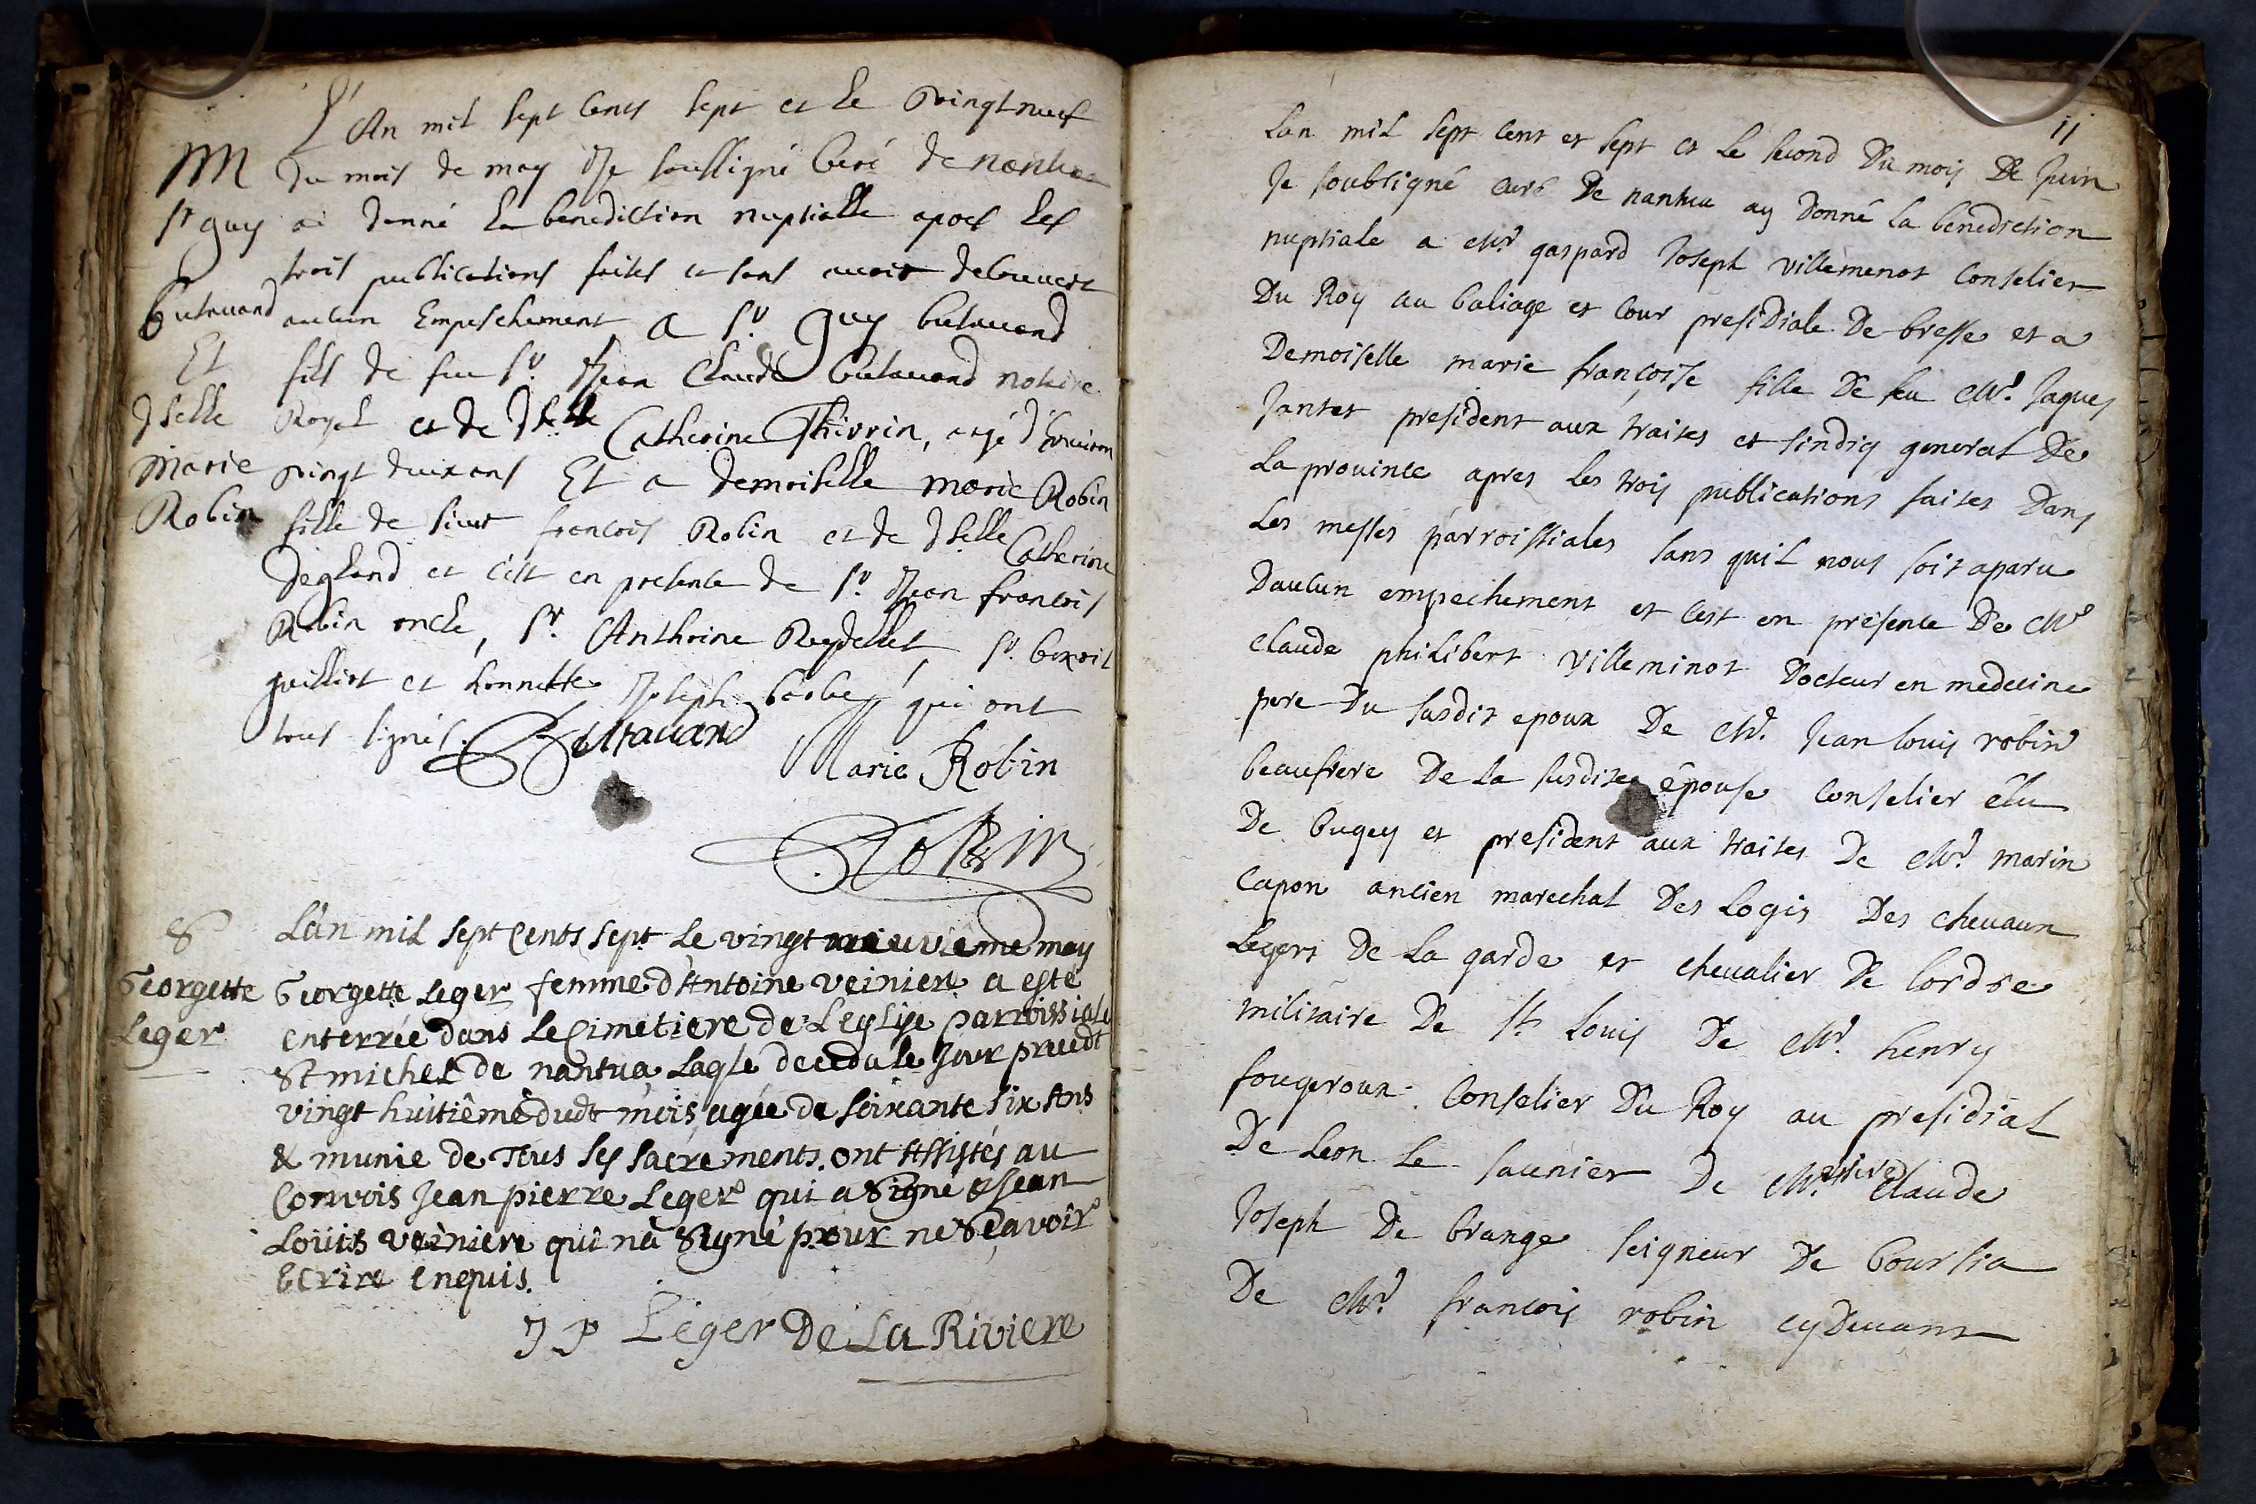 L'An mil sept Cents sept et le vingt neuf
M
du mois de may Je soussigné Curé de nantua
Sr guy
ai donné la benediction nuptialle apres les
trois publications faites et sans avoir decouvert
Butavand
aucun Empeschement a Sr. Guy butavand
Et
fils de feu Sr. Jean Claude butavand notaire
dselle
Royal et de dselle Catherine Thivrin, agé d'environ
Marie
vingt deux ans Et a demoiselle marie Robin
Robin
fille de sieur francois Robin et de dselle Catherine
degland et c'est en presence de Sr. Jean francois
Robin oncle, Sr. Anthoine Reydellet, Sr. benoit
guilliot et honnette Joseph barbe, qui ont
tous signés.
Butavand
Marie Robin
Robin
S
L'an mil sept cents sept le vingt neuvième may
Georgette
Georgette Leger femme d'Antoine veiniere a esté
Leger
enterrée dans le Cimetiere de L'eglise parroissiale
St michel de nantua laqle deceda le jour precedt
vingt huitième dudt mois, agée de soixante six Ans
& munie de Tous ses sacrements. ont Assistés au
Convois Jean pierre Leger qui a signé & Jean
Loüis veiniere qui n'a signé pour ne sçavoir
Ecrire enquis.
J P Leger De La Riviere
11
Lan mil sept cent et sept et le second Du mois De Juin
Je soubsigné curé De nantua ay Donné la benediction
nuptiale a Mr. gaspard Joseph villemenot Conselier
Du Roy au baliage et cour presidiale De bresse et a
Demoiselle marie françoise fille De feu Mr. Jaques
Jantet president aux traites et sindiq general De
La province apres les trois publications faites Dans
Les messes parroissiales sans quil nous soit aparu
Daucun empechement et cest en presence De Mr
claude philibert villeminot Docteur en medecine
pere Du susdit epoux De Mr. Jean louis robin
beaufrere De la susdite épouse conselier élu
De bugey et president aux traites De Mr. marin
Capon ancien marechal Des Logis Des chevaux
Legers De la garde et chevalier De lordre
militaire De St Louis De Mr. henry
fougeroux Conselier Du Roy au presidial
De Leon Le saunier De Mr. claude
Joseph De brange seigneur De boursia
De Mr. francois robin cy Devant